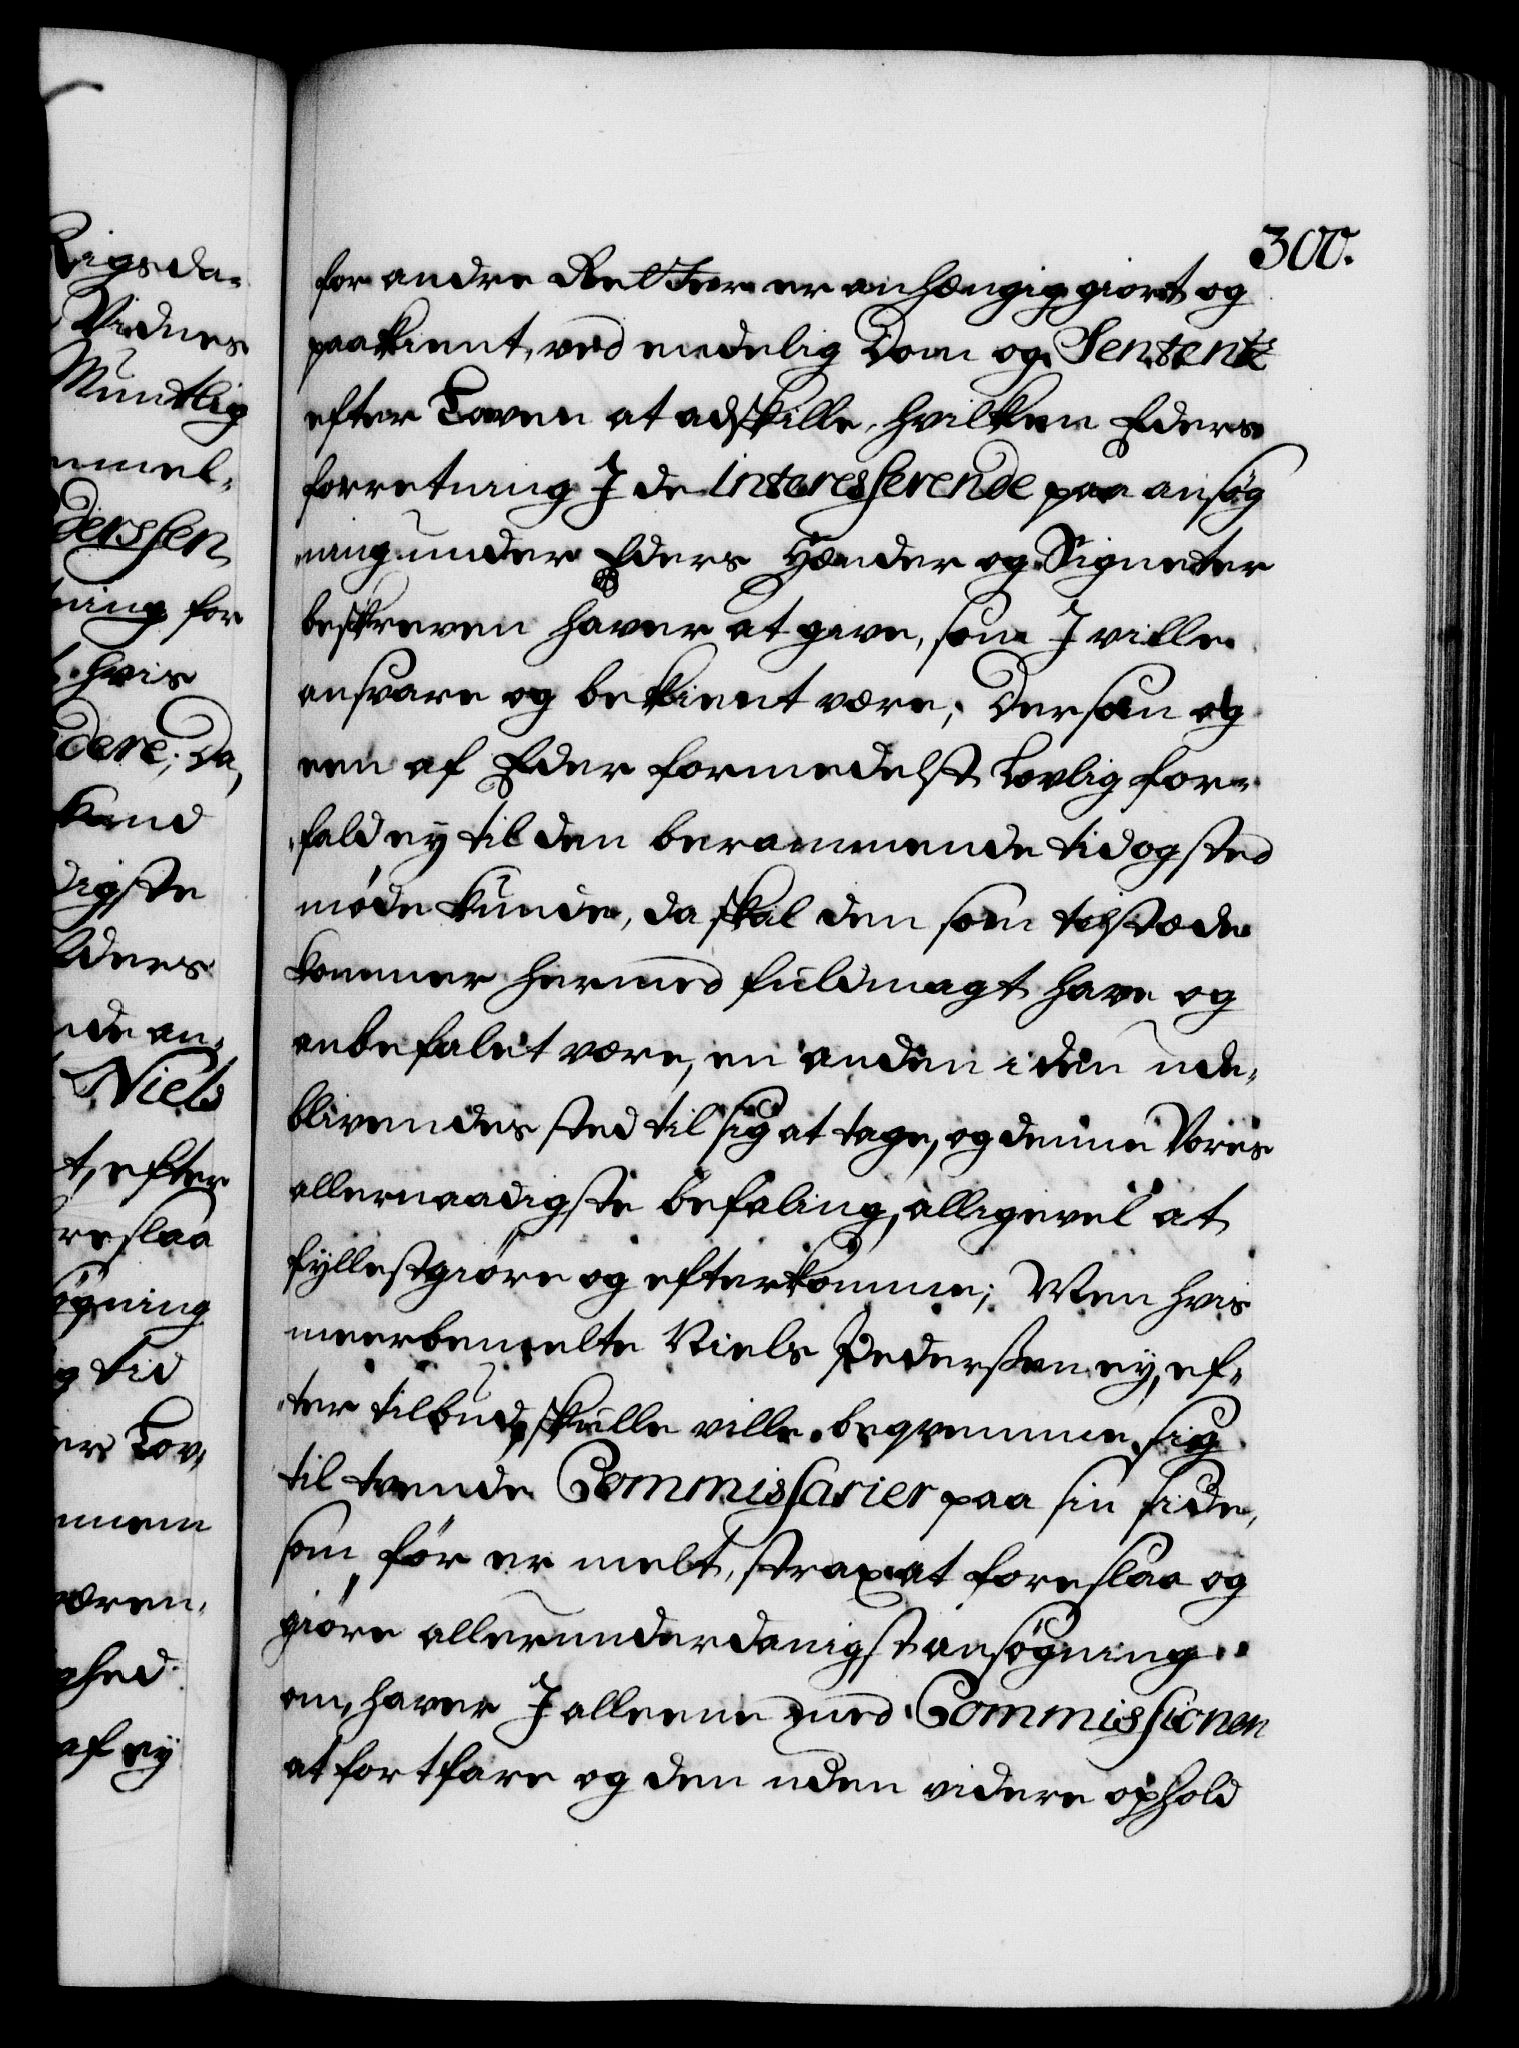 300.
for andre Retter er anhængig giort og
paakient, ved endelig Dom og Sententz
efter Loven at adskille, hvilken Eders
forretning I de interesserende paa ansøg
ning under Eders Hænder og Signeter
beskreven haver at give, som I ville
ansvare og bekient være; Dersom og
een af Eder formedelst Lovlig for-
fald ey til den berammende tid og sted
møde kunde, da skal den som tilstæde
kommer hermed fuldmagt have og
anbefalet være, en anden i den ude-
blivendes sted til sig at tage, og denne Vores
allernaadigste befaling, alligevel at
fyllestgiøre og efterkomme; Men hvis
meerbemelte Niels Pederssen ey, ef-
ter tilbud, skulle ville beqvemme sig
til tvende Commissarier paa sin side,
som før er melt, strax at foreslaa og
giøre allerunderdanigst ansøgning
om, haver I alleene med Commissionen
at fortfare og den uden videre ophold
Rigsda-
Vidnes
Mundtlig
mel-
derssen
ning for
hvis
dere; da
kand
digste
lders
nde an-
Niels
t, efter
reslaa
øgning
g tid
ers Lov,
nnem
væren-
ghed
af ey